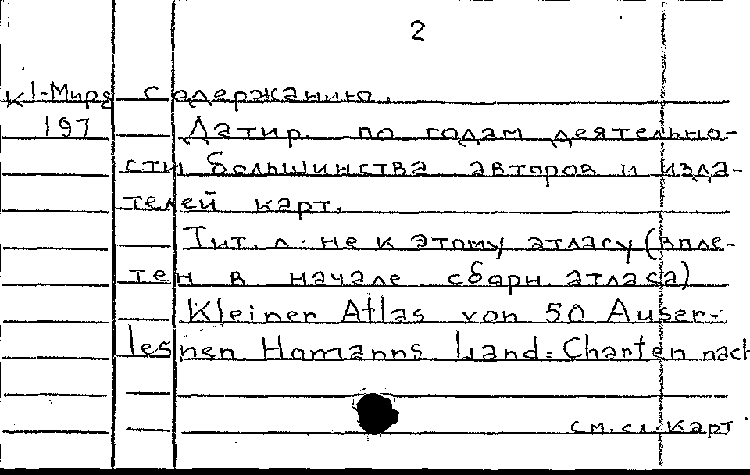 2
К1-Мира содержанию.
197 Датир. по годам деятельно-
сти большинства авторов и изда-
телей карт.
Тит. л. не к этому атласу (впле-
тен в начале сборн. атласа)
Kleiner Atlas von 50 Auser-
lesnen Homanns Land=Charten nach
см. сл. карт.